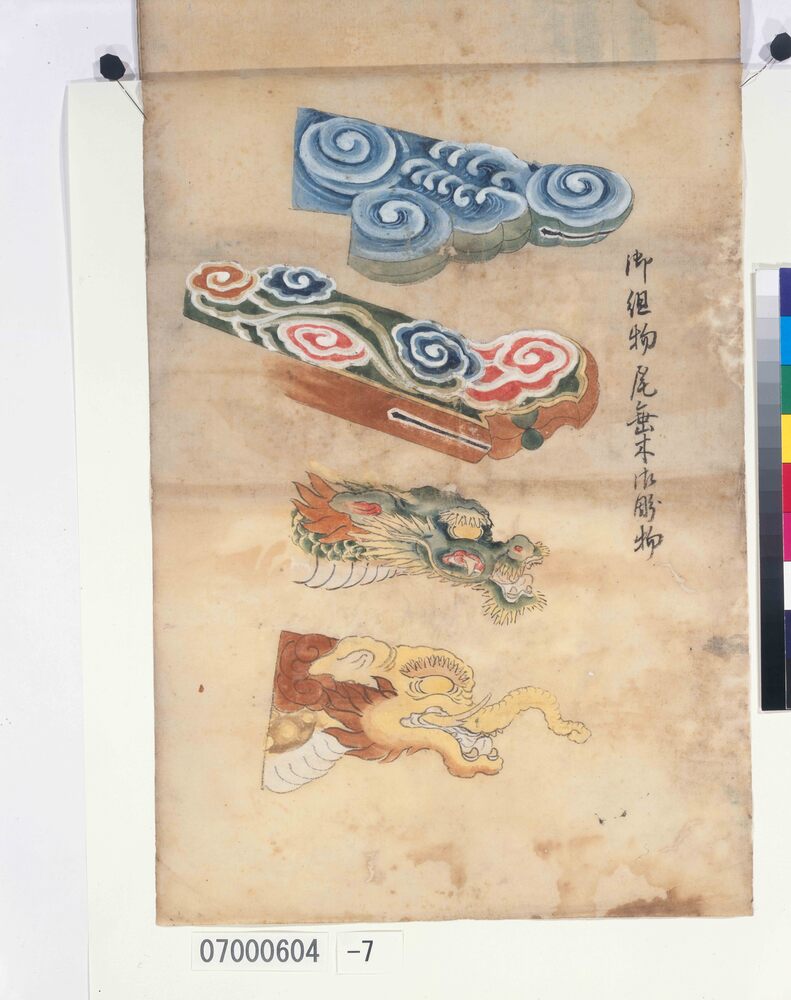 御組物尾垂木御彫物
07000604 -7